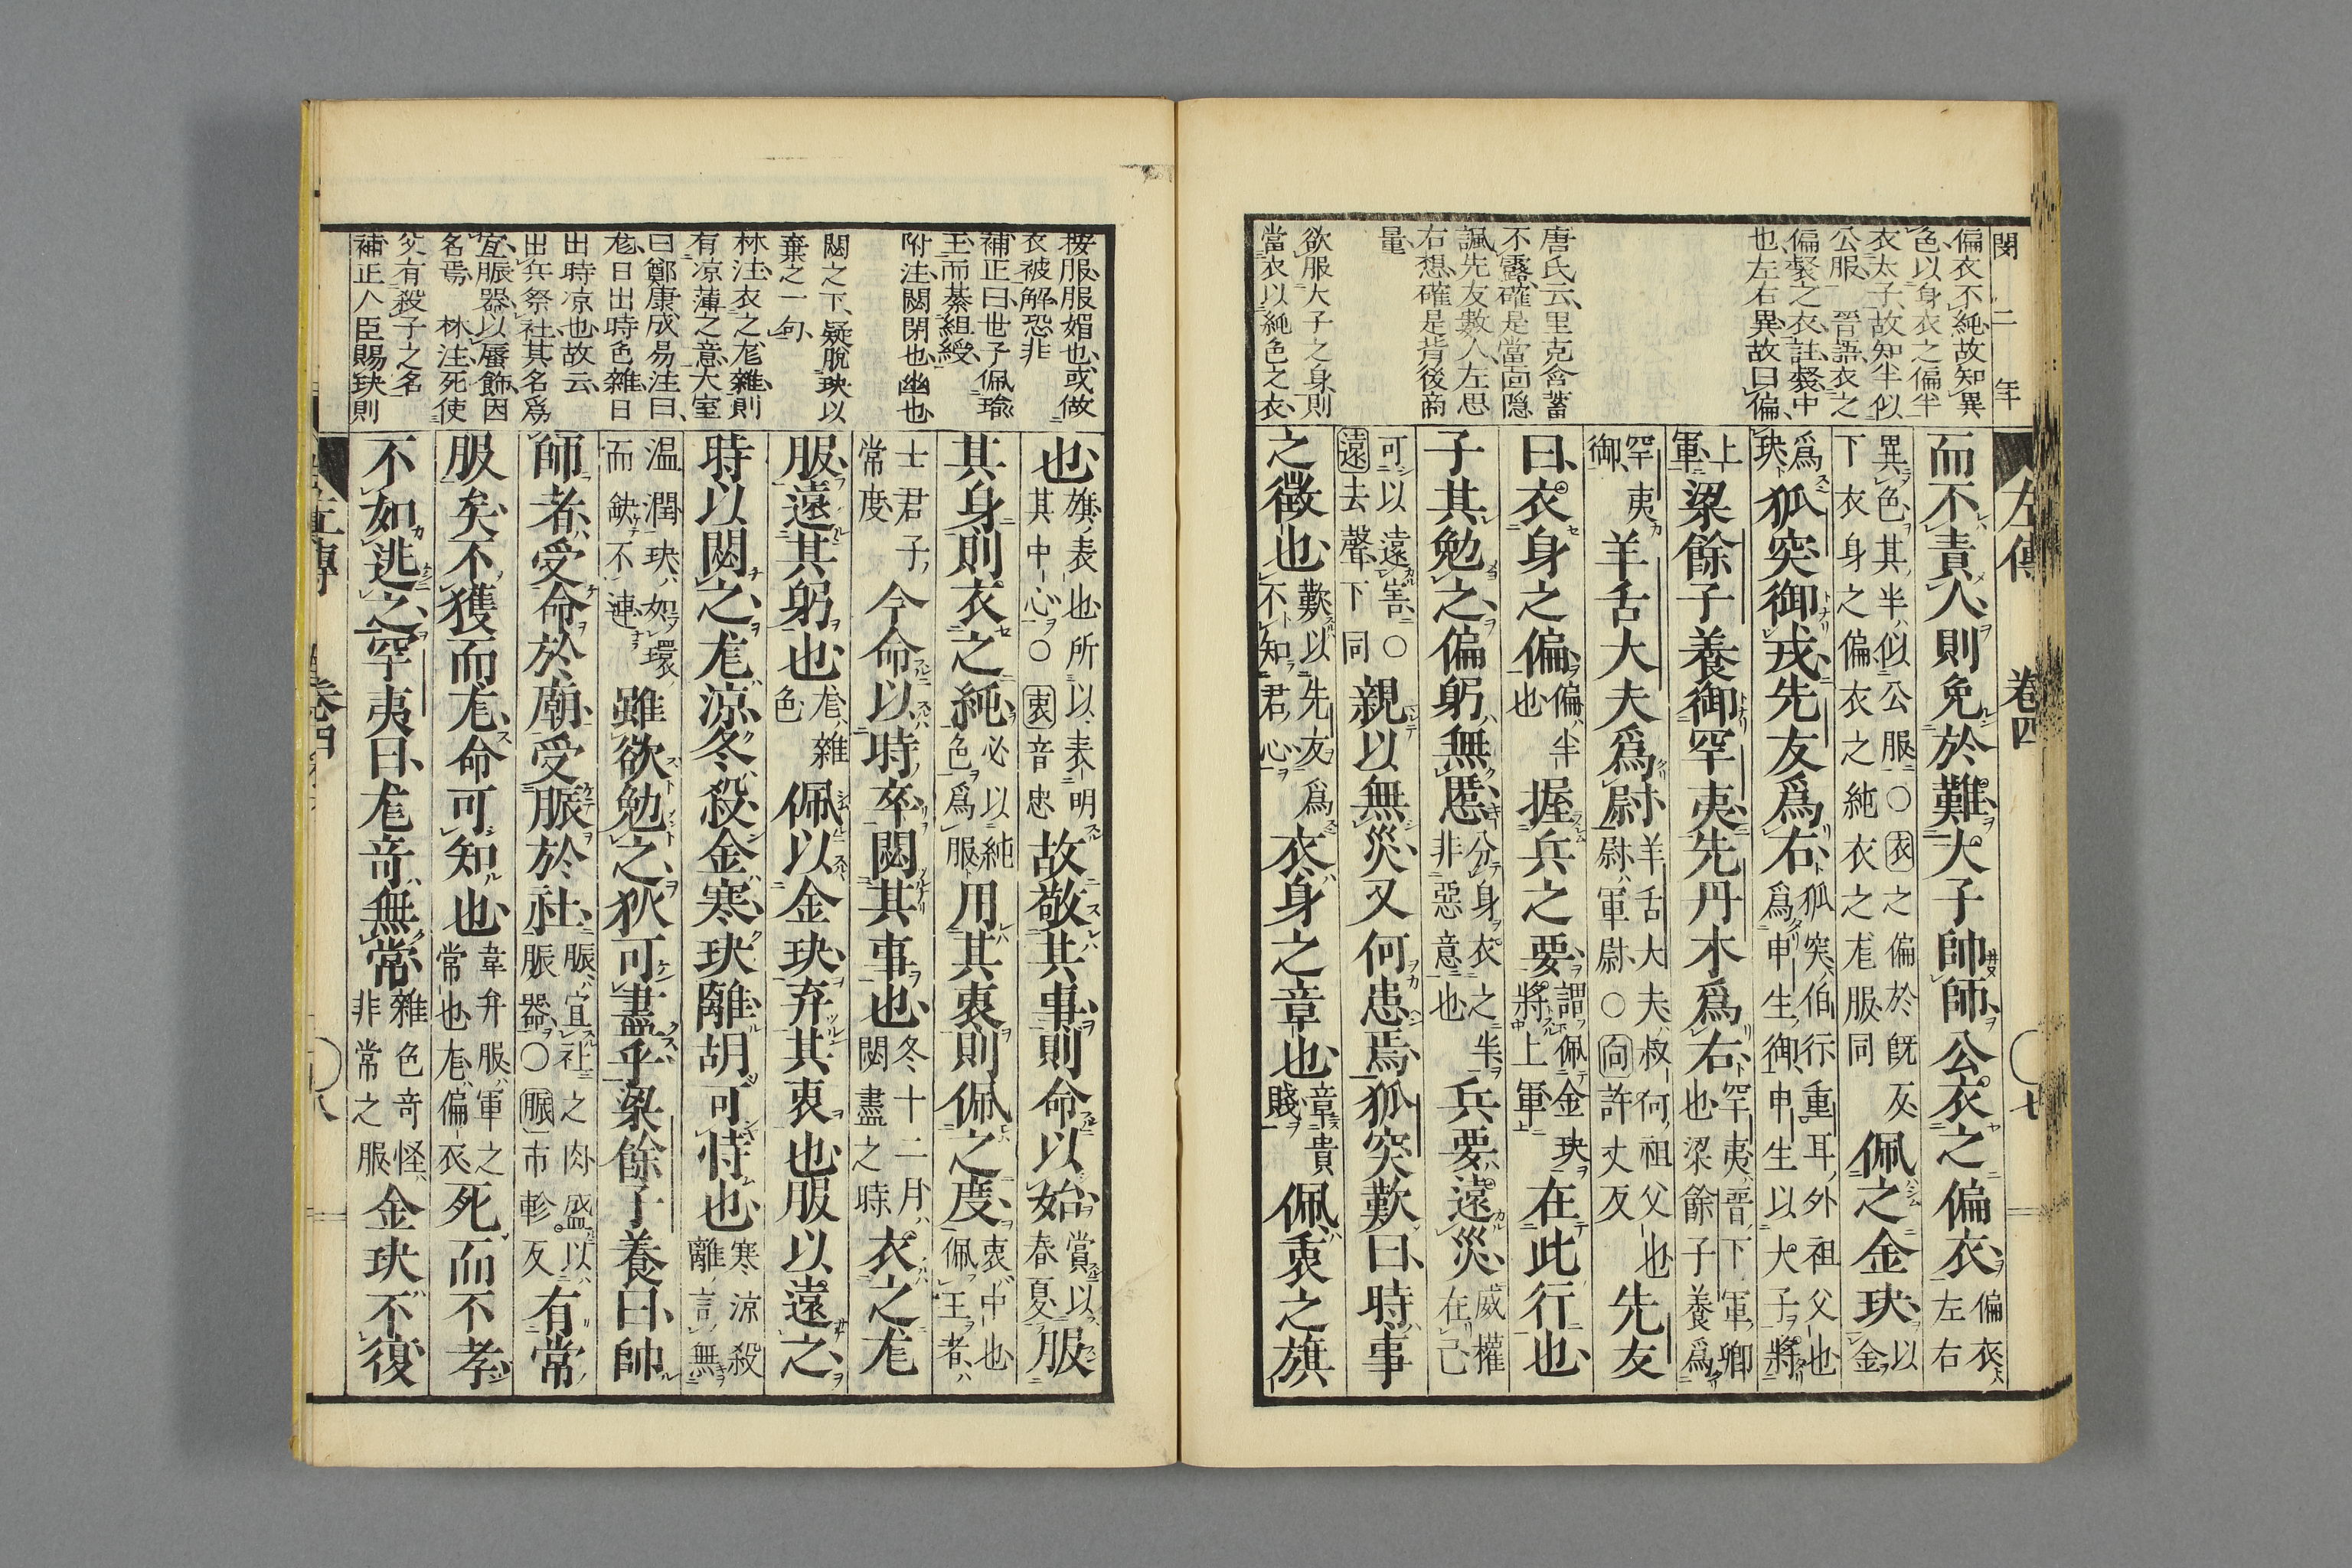 閔二年
左傳 卷四 七
偏衣不純故知異
色以身衣之偏半
衣太子故知半似
公服 晉語衣之
偏裻之衣註裻中
也左右異故曰偏
唐氏云里克含蓄
不露確是當面隱
諷先友數人左思
右想確是背後商
量
欲服大子之身則
當衣以純色之衣
而不責人則免於難大子帥師公衣之偏衣偏衣左右
異色其半似公服○衣之偏於既反下衣身之偏衣之純衣之尨服同佩之金玦以金
爲玦狐突御戎先友爲右狐突伯行重耳外祖父也爲申生御申生以大子將
上軍梁餘子養御罕夷先丹木爲右罕夷晉下軍卿也梁餘子養爲
罕夷御羊舌大夫爲尉羊舌大夫叔向祖父也尉軍尉○向許丈反先友
曰衣身之偏偏半也握兵之要謂佩金玦將上軍在此行也
子其勉之偏躬無慝分身衣之半非惡意也兵要遠災威權在己
可以遠害○遠去聲下同親以無災又何患焉狐突歎曰時事
之徵也歎以先友爲不知君心衣身之章也章貴賤佩衷之旗
按服服媚也或做
衣被解恐非
補正曰世子佩瑜
玉而綦組綬
附注閟閉也幽也
閟之下疑脫玦以
棄之一句
林注衣之尨雜則
有凉薄之意大室
曰鄭康成易注曰
尨日出時色雜日
出時凉也故云
出兵祭社其名爲
宜脤器以蜃飾因
名焉 林注死使
父有殺子之名
補正人臣賜玦則
也旗表也所以表明其中心○衷音忠故敬其事則命以始賞以春夏服
其身則衣之純必以純色爲服用其衷則佩之度衷中也佩玉者
士君子常度今命以時卒閟其事也冬十二月閟盡之時衣之尨
服遠其躬也尨雜色佩以金玦弃其衷也服以遠之
時以閟之尨涼冬殺金寒玦離胡可恃也寒涼殺離言無
温潤玦如環而缺不連雖欲勉之狄可盡乎梁餘子養曰帥
師者受命於廟受脤於社脤宜社之肉盛以脤器○脤市軫反有常
服矣不獲而尨命可知也韋弁服軍之常也尨偏衣死而不孝
不如逃之罕夷曰尨奇無常雜色奇怪非常之服金玦不復
卷四 八